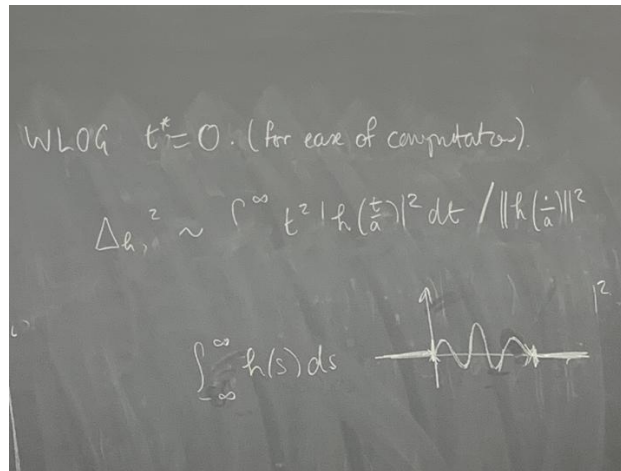 WLOG t*=0. (for ease of computation).
Δ_h,² ~ ∫^∞ t² |h(t/a)|² dt / ||h(·/a)||²
|²
∫_{-∞}^{∞} h(s) ds